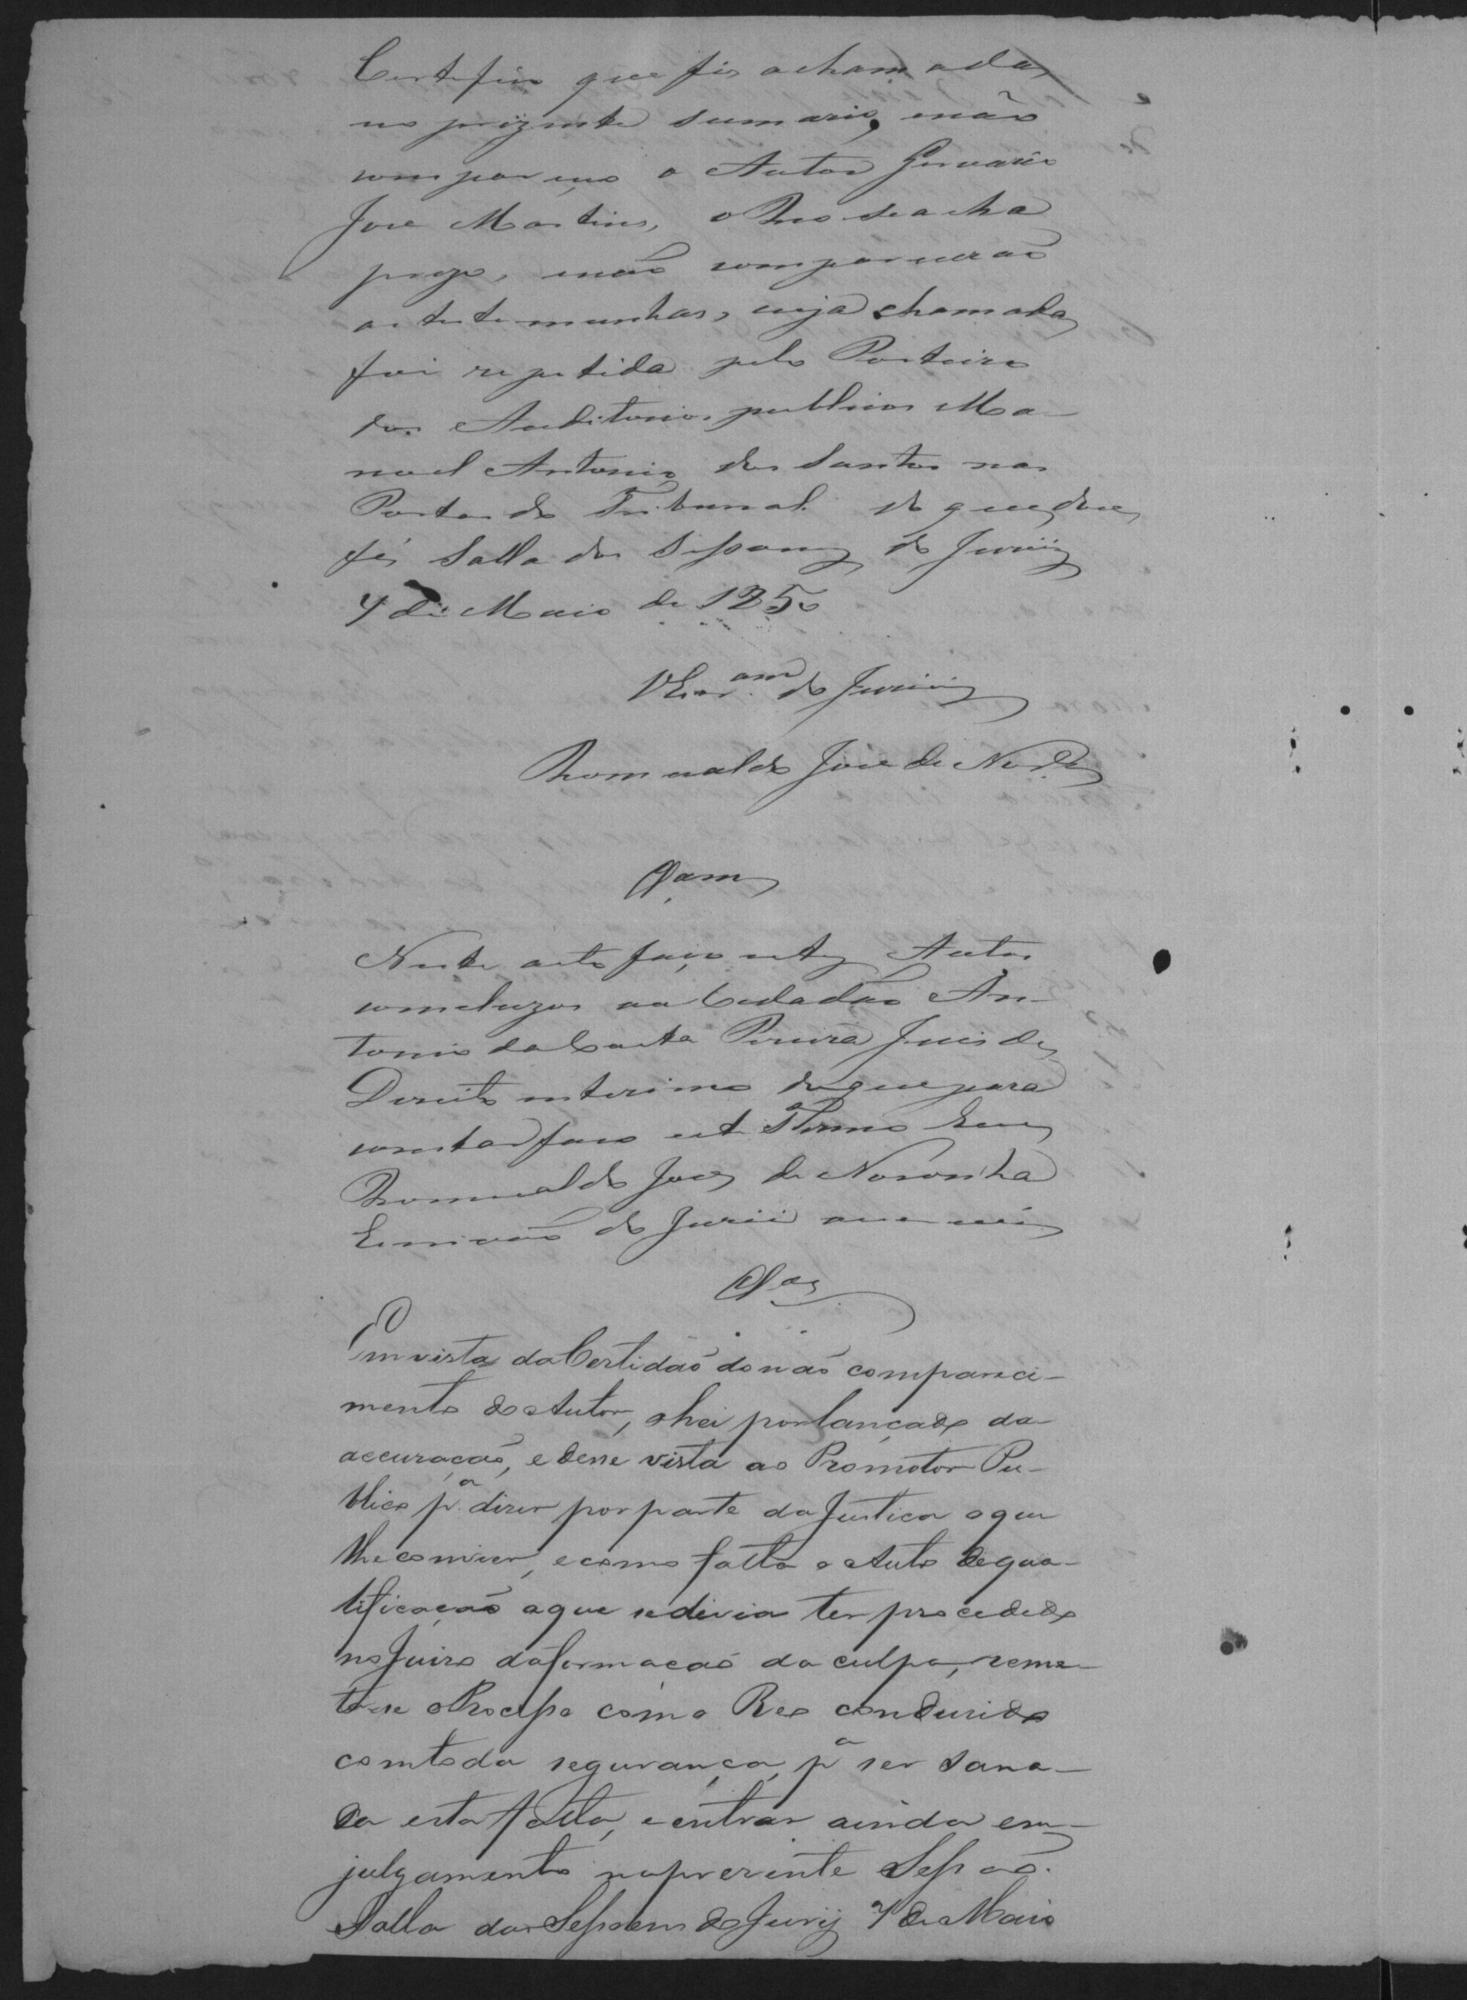 Certefico que fis achamada
no prizente sumario, enão
compareceo o Autor Gervazio
Jose Martins, o Reo se acha
prezo, enão comparecerão
as testemunhas, cuja chamada
foi repetida pelo Porteiro
dos Auditorios publicos Ma-
noel Antonio dos Santos nas
Portas do Tribunal do que dou
fé. Salla das Sessoens do Jurij
7 de Maio de 1850
O Escr.am do Jurii
Romualdo Jose de Nor.a
Clsam
Neste acto faço estes Autos
concluzos ao Cidadão An-
tonio da Costa Pereira Juis de
Direito interino do que para
constar faco este Termo Eu
Romualdo Jose de Noronha
Escrivão do Jurii que escrevi
Clsos
Em vista da Certidaõ do naõ compareci-
mento do Autor, o hei por lançado da
accuzaçaõ, e dese vista ao Promotor Pu-
blico p.a dizer por parte da Justica o que
lhe convier, e como falta o Auto de qua-
lificaçaõ a que se divia ter procedido
no Juizo da formaçaõ da culpa, reme-
ta-se o Processo com o Reo conduzido
com toda segurança, p.a ser sana-
da esta falta, e entrar ainda em
julgamento na prezente Sessaõ.
Salla das Sessoens do Jurij 7 de Maio